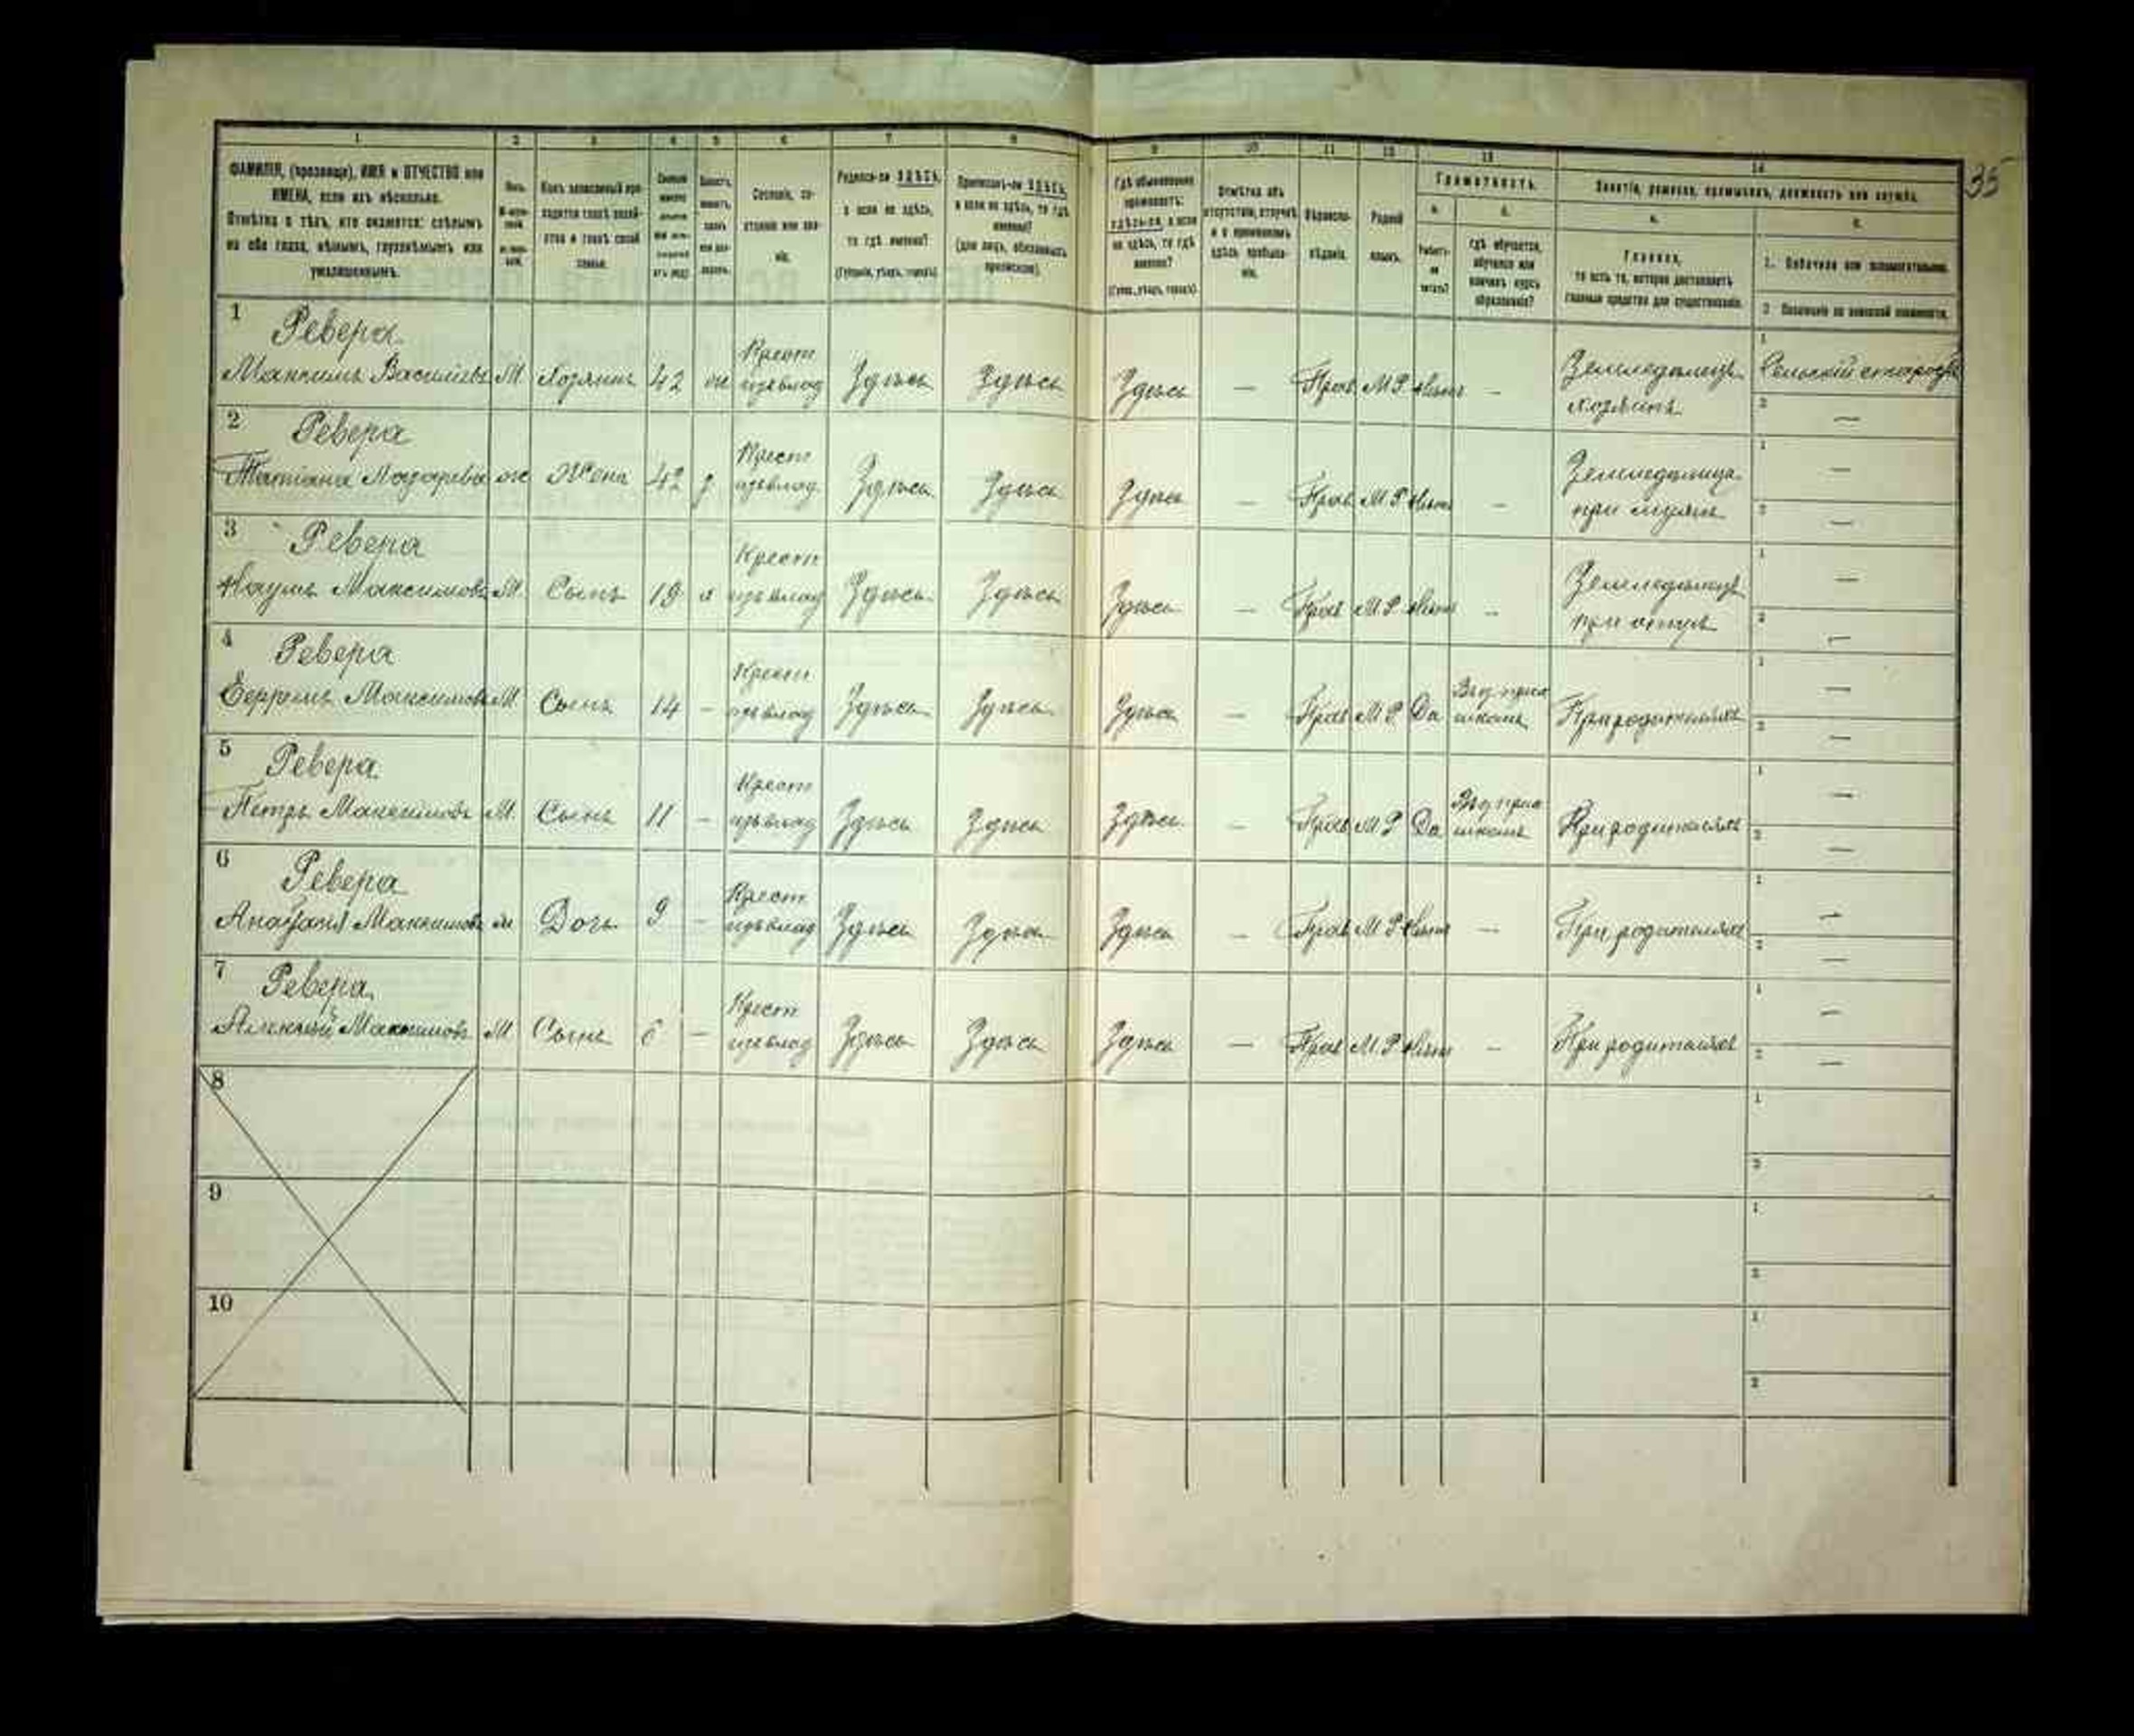 1 2 3 4 5 6 7 8 9 10 11 12 13 14
35
ФАМИЛІЯ, (прозвище), ИМЯ и ОТЧЕСТВО или
ИМЕНА, если ихъ нѣсколько.
Отмѣтка о тѣхъ, кто окажется: слѣпымъ
на оба глаза, нѣмымъ, глухонѣмымъ или
умалишеннымъ.
Полъ.
Сословіе, со-
стояніе или зва-
ніе.
Родился-ли ЗДѢСЬ,
а если не здѣсь,
то гдѣ именно?
(Губернія, уѣздъ, городъ)
Приписанъ-ли ЗДѢСЬ,
а если не здѣсь, то гдѣ
именно?
(для лицъ, обязанныхъ
припискою).
Гдѣ обыкновенно
проживаетъ:
здѣсь-ли, а если
не здѣсь, то гдѣ
именно?
Отмѣтка объ
отсутствіи, отлучкѣ
и о временномъ
здѣсь пребыва-
ніи.
Вѣроиспо-
вѣданіе.
Родной
языкъ.
Грамотность.
а.
б.
Умѣетъ-
ли
читать?
гдѣ обучается,
обучался или
кончилъ курсъ
образованія?
Занятіе, ремесло, промыселъ, должность или служба.
Главное,
то есть то, которое доставляетъ
главныя средства для существованія.
1. Побочное или вспомогательное.
2 Положеніе по воинской повинности.
1 Ревера
Максимъ Васильевъ М Хозяинъ 42 ж Крест изъ влад Здѣсь Здѣсь Здѣсь — Прав М Р Нѣтъ — Земледѣлецъ хозяинъ 1 Сельскій староста 2 —
2 Ревера
Татіана Лазарева ж Жена 42 з Крест изъ влад Здѣсь Здѣсь Здѣсь — Прав М Р Нѣтъ — Земледѣлица при мужѣ 1 — 2 —
3 Ревера
Наумъ Максимовъ М Сынъ 19 х Крест изъ влад Здѣсь Здѣсь Здѣсь — Прав М Р Нѣтъ — Земледѣлецъ при отцѣ 1 — 2 —
4 Ревера
Ефремъ Максимовъ М Сынъ 14 - Крест изъ влад Здѣсь Здѣсь Здѣсь — Прав М Р Да школѣ При родителяхъ 1 — 2 —
5 Ревера
Петръ Максимовъ М Сынъ 11 - Крест изъ влад Здѣсь Здѣсь Здѣсь — Прав М Р Да школѣ При родителяхъ 1 — 2 —
6 Ревера
Максимова Дочь 9 - Крест изъ влад Здѣсь Здѣсь Здѣсь — Прав М Р Нѣтъ — При родителяхъ 1 — 2 —
7 Ревера
Алексѣй Максимовъ М Сынъ 6 - Крест изъ влад Здѣсь Здѣсь Здѣсь — Прав М Р Нѣтъ — При родителяхъ 1 — 2 —
8 1 2
9 1 2
10 1 2